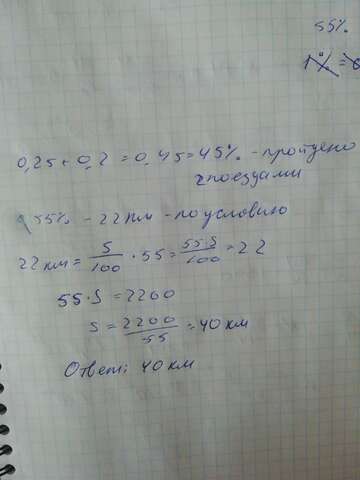 55%.
1% = 6
0,25 + 0,2 = 0,45 = 45%. - пройдено
2 поездами
55% - 22км - по условию
22 км = S/100 · 55 = 55·S/100 = 22
55·S = 2200
S = 2200/55 = 40 км
Ответ: 40 км